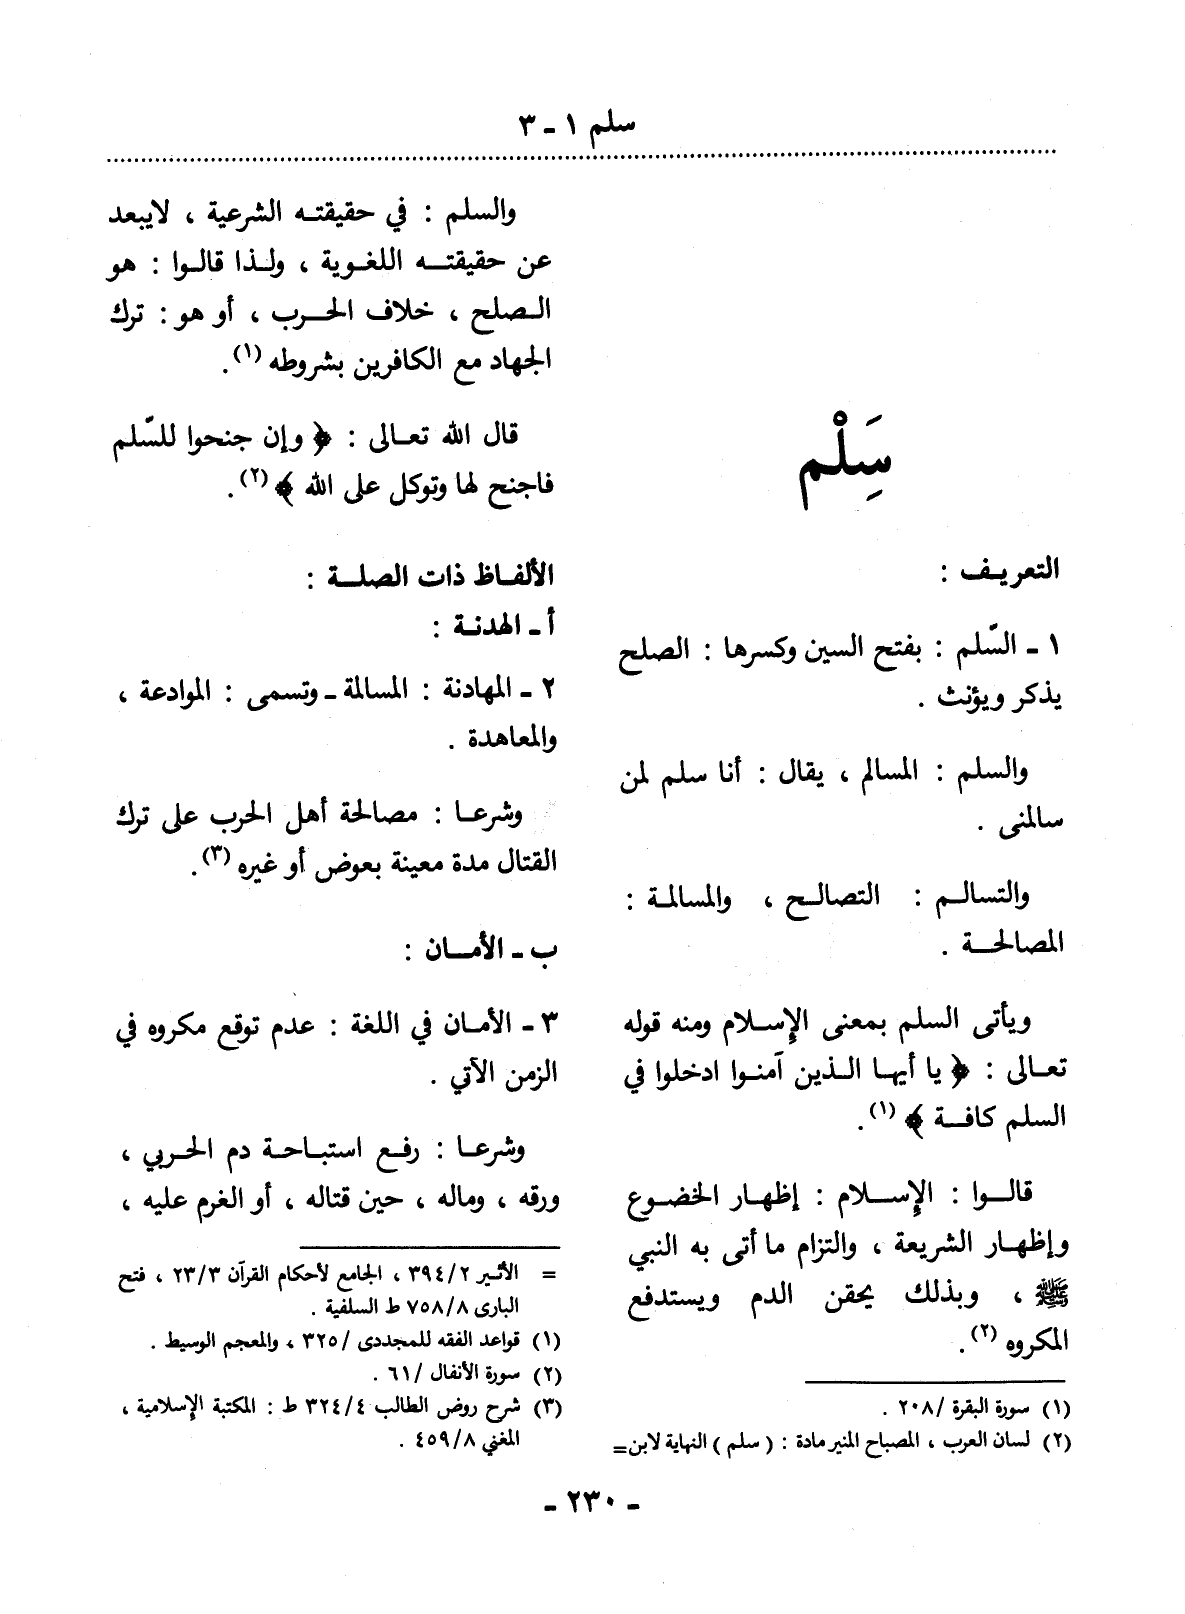 سلم ١ - ٣
سَِلْم
التعريف :
١ - السّلم : بفتح السين وكسرها : الصلح
يذكر ويؤنث .
والسلم : المسالم ، يقال : أنا سلم لمن
سالمنى .
والتسالم : التصالح ، والمسالمة :
المصالحة .
ويأتى السلم بمعنى الإسلام ومنه قوله
تعالى : ﴿ يا أيها الذين آمنوا ادخلوا في
السلم كافة ﴾ (١).
قالوا : الإسلام : إظهار الخضوع
وإظهار الشريعة ، والتزام ما أتى به النبي
ﷺ ، وبذلك يحقن الدم ويستدفع
المكروه (٢).
(١) سورة البقرة /٢٠٨ .
(٢) لسان العرب ، المصباح المنير مادة : ( سلم ) النهاية لابن=
والسلم : في حقيقته الشرعية ، لايبعد
عن حقيقته اللغوية ، ولذا قالوا : هو
الصلح ، خلاف الحرب ، أو هو : ترك
الجهاد مع الكافرين بشروطه (١).
قال الله تعالى : ﴿ وإن جنحوا للسّلم
فاجنح لها وتوكل على الله ﴾ (٢).
الألفاظ ذات الصلة :
أ - الهدنة :
٢ - المهادنة : المسالمة - وتسمى : الموادعة ،
والمعاهدة .
وشرعا : مصالحة أهل الحرب على ترك
القتال مدة معينة بعوض أو غيره (٣).
ب - الأمان :
٣ - الأمان في اللغة : عدم توقع مكروه في
الزمن الآتي .
وشرعا : رفع استباحة دم الحربي ،
ورقه ، وماله ، حين قتاله ، أو الغرم عليه ،
= الأثير ٣٩٤/٢ ، الجامع لأحكام القرآن ٢٣/٣ ، فتح
البارى ٧٥٨/٨ ط السلفية .
(١) قواعد الفقه للمجددى /٣٢٥ ، والمعجم الوسيط .
(٢) سورة الأنفال /٦١ .
(٣) شرح روض الطالب ٣٢٤/٤ ط : المكتبة الإسلامية ،
المغني ٤٥٩/٨ .
- ٢٣٠ -